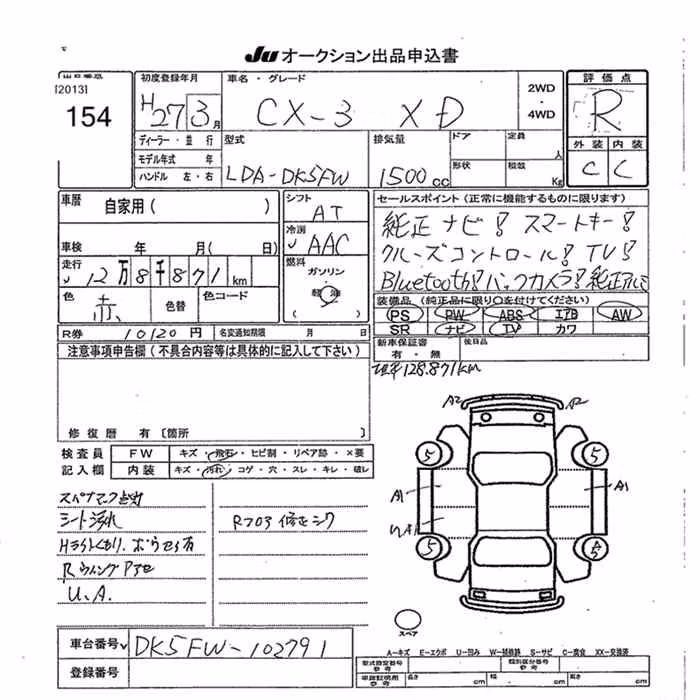 JU オークション出品申込書
[2013]
154
初度登録年月
H27 3月
車名・グレード
CX-3 XD
2WD
・
4WD
評価点
R
外装 内装
C C
ディーラー・並行
モデル年式 年
ハンドル 左・右
型式
LDA-DK5FW
排気量
1500cc
ドア
定員
人
形状
積載
Kg
車歴
自家用( )
車検 年 月( 日)
走行
12万8千871km
色
赤
色替
色コード
シフト
AT
冷房
AAC
燃料
ガソリン
・
軽油
( )
セールスポイント(正常に機能するものに限ります)
純正ナビ! スマートキー!
クルーズコントロール! TV!
Bluetooth! バックカメラ! 純正アルミ
装備品(純正品に限り○を付けてください)
PS PW ABS エアB AW
SR ナビ TV カワ
R券 10120円 名変通知期限 月 日
新車保証書
有・無
後日品
128.871km
注意事項申告欄(不具合内容等は具体的に記入して下さい)
修復歴 有〔箇所 〕
検査員
記入欄
FW キズ・飛石・ヒビ割・リペア跡・×要
内装 キズ・汚れ・コゲ・穴・スレ・キレ・破レ
シート汚れ
U、A
Rフロア修正
A2 A2
5 5
A1 A1
5 5
スペア
A-キズ E-エクボ U-凹み W-補修跡 S-サビ C-腐食 XX-交換済
車台番号 DK5FW-102791
登録番号
型式指定番号
参考
類別区分番号
参考
車庫証明用
参考
長さ cm 幅 cm 高さ cm